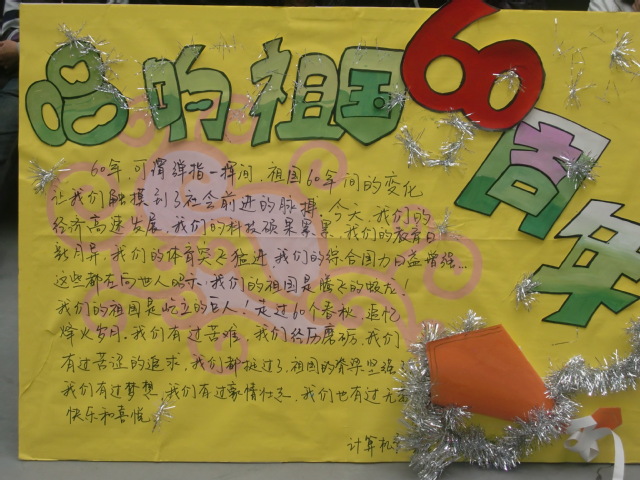 唱响祖国60周年
60年,可谓弹指一挥间,祖国60年间的变化
让我们触摸到了社会前进的脉搏,今天,我们的
经济高速发展,我们的科技硕果累累,我们的教育日
新月异,我们的体育突飞猛进,我们的综合国力日益增强...
这些都在向世人昭示:我们的祖国是腾飞的蛟龙!
我们的祖国是屹立的巨人!走过60个春秋,追忆
烽火岁月,我们有过苦难,我们经历磨砺,我们
有过苦涩的追求,我们都挺过了,祖国的脊梁坚强
我们有过梦想,我们有过豪情壮志,我们也有过无
快乐和喜悦
计算机